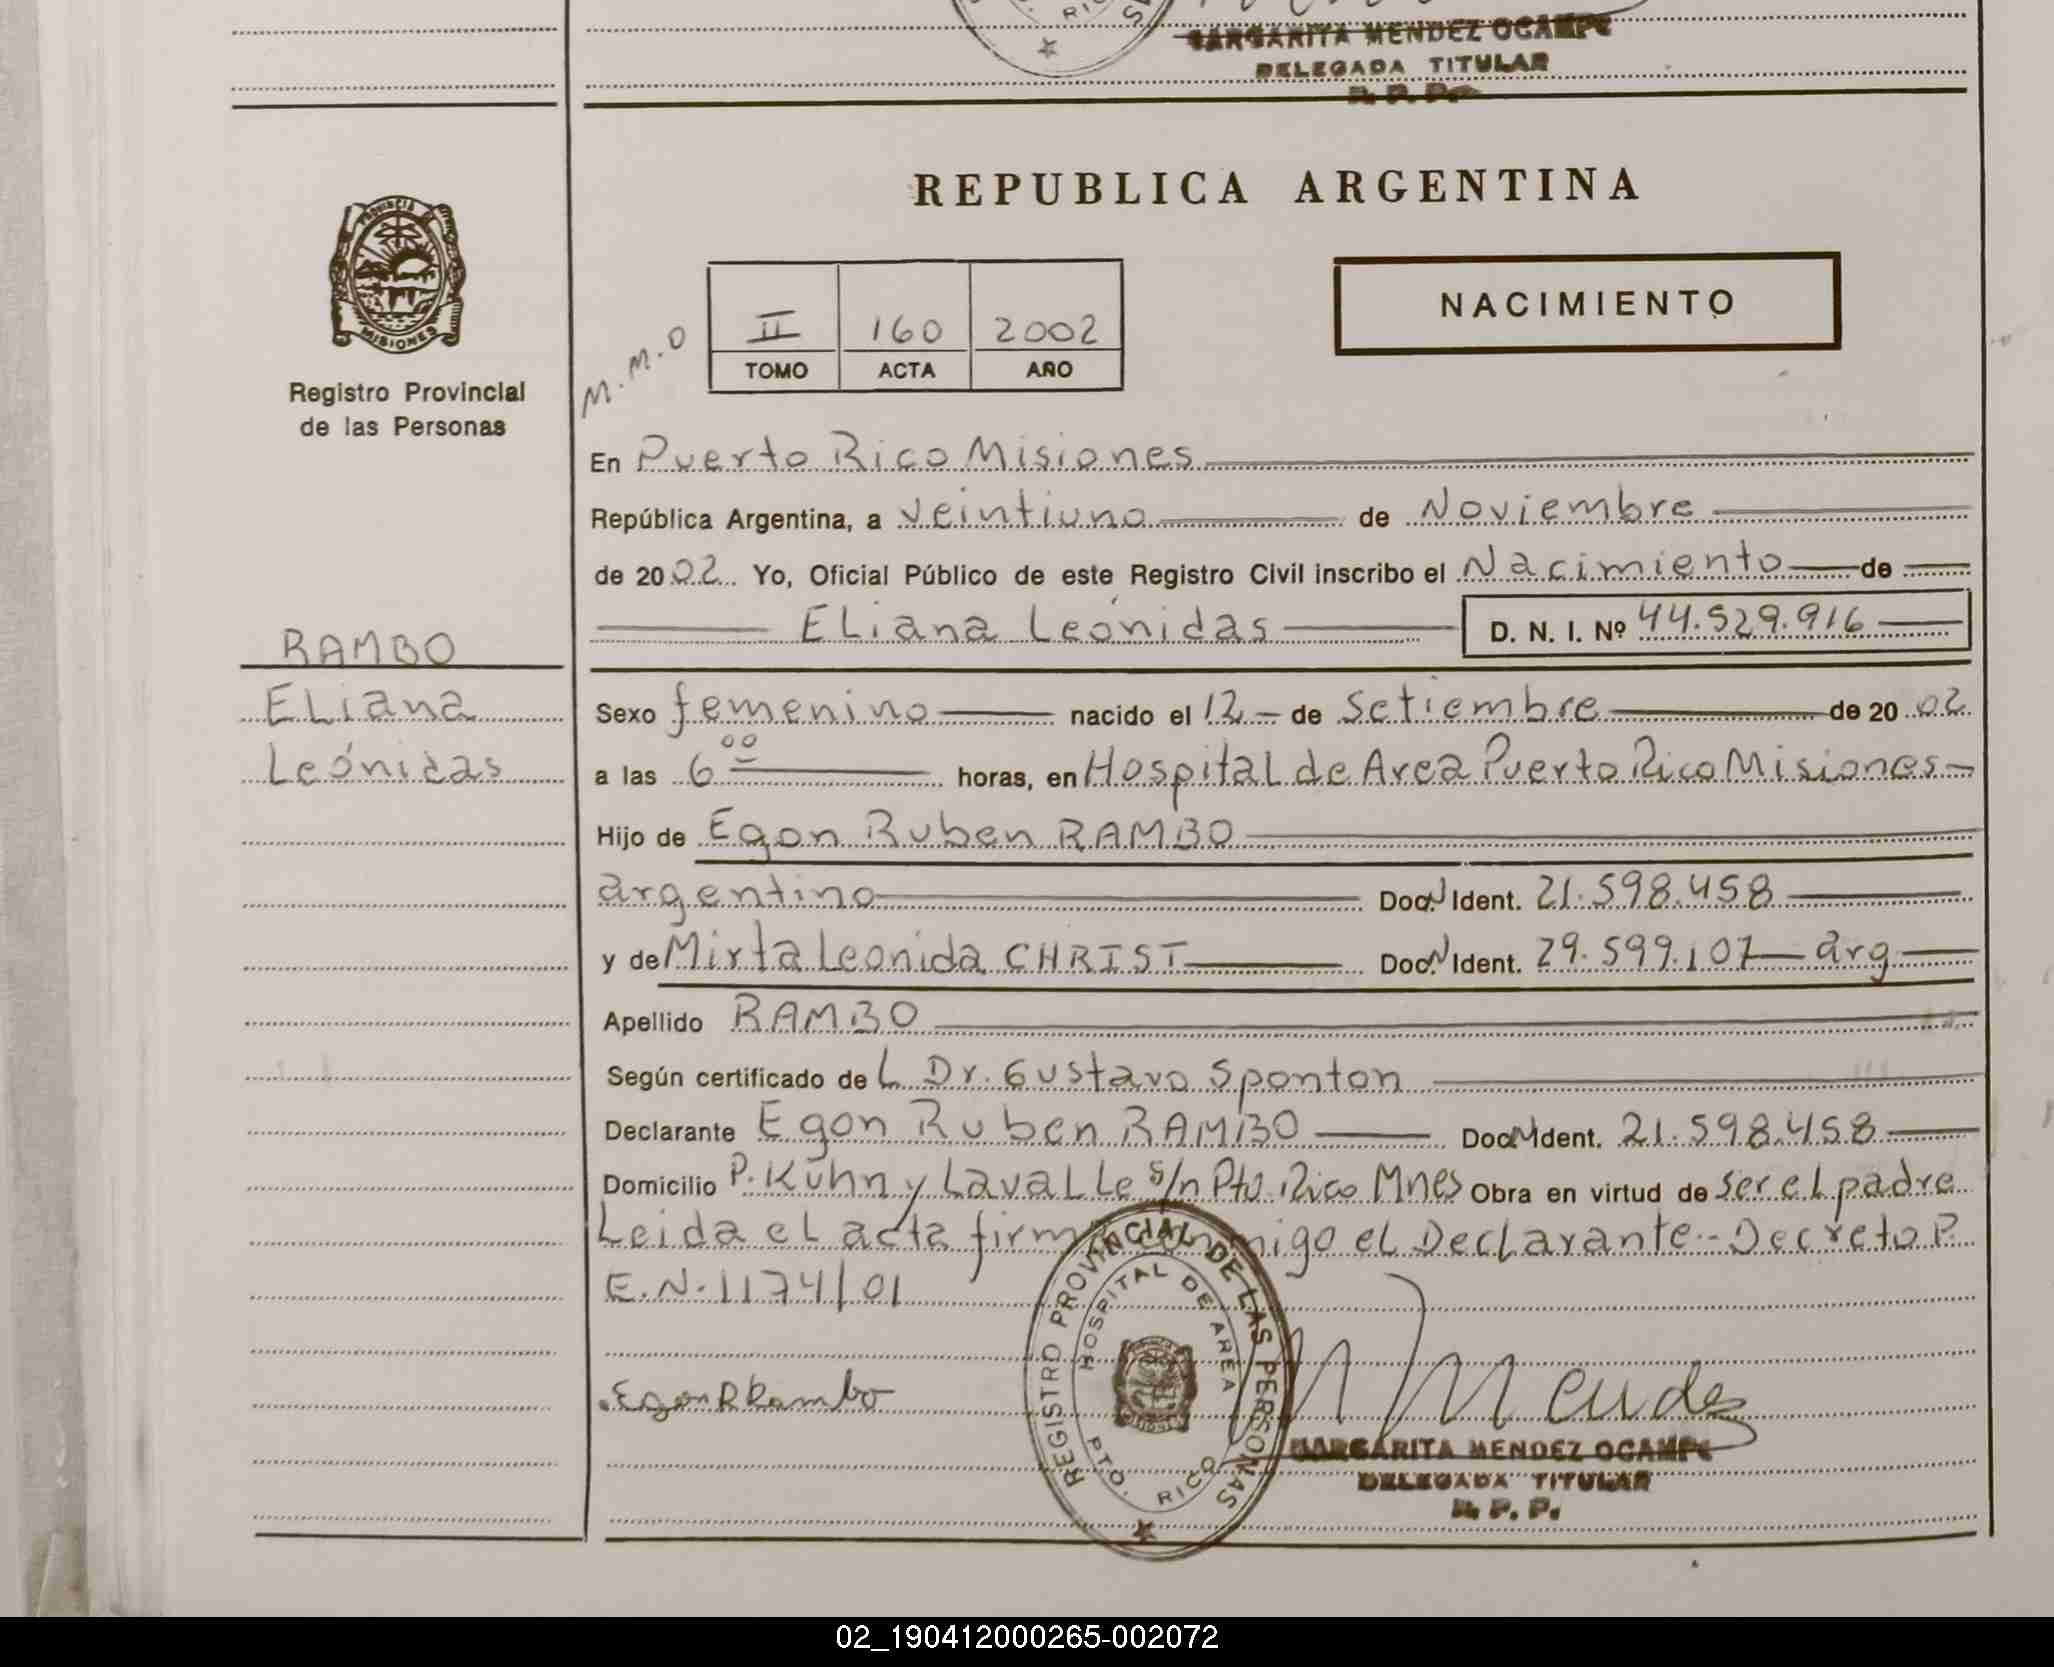 MARGARITA MENDEZ OCAMPO
DELEGADA TITULAR
R. P. P.
PROVINCIA
MISIONES
Registro Provincial
de las Personas
REPUBLICA ARGENTINA
M.M.O
II 160 2002
TOMO ACTA AÑO
NACIMIENTO
En Puerto Rico Misiones
República Argentina, a veintiuno de Noviembre
de 2002 Yo, Oficial Público de este Registro Civil inscribo el Nacimiento de
ELiana Leónidas D. N. I. Nº 44.529.916
RAMBO
ELiana
Leónidas
Sexo femenino nacido el 12 de Setiembre de 2002
a las 6 00 horas, en HospitaL de Area Puerto Rico Misiones
Hijo de Egon Ruben RAMBO
argentino Doc. N Ident. 21.598.458
y de Mirta Leonida CHRIST Doc. N Ident. 29.599.107 arg
Apellido RAMBO
Según certificado de L Dr. Gustavo Sponton
Declarante Egon Ruben RAMBO Doc. N Ident. 21.598.458
Domicilio P. Kuhn y LavaLLe s/n Pto. Rico Mnes Obra en virtud de ser eL padre
Leida eL acta firma conmigo eL DecLarante.- Decreto P.
E.N. 1174/01
REGISTRO PROVINCIAL DE LAS PERSONAS
HOSPITAL DE AREA
PTO. RICO
Egon R Rambo
M Mendez
MARGARITA MENDEZ OCAMPO
DELEGADA TITULAR
R. P. P.
02_190412000265-002072